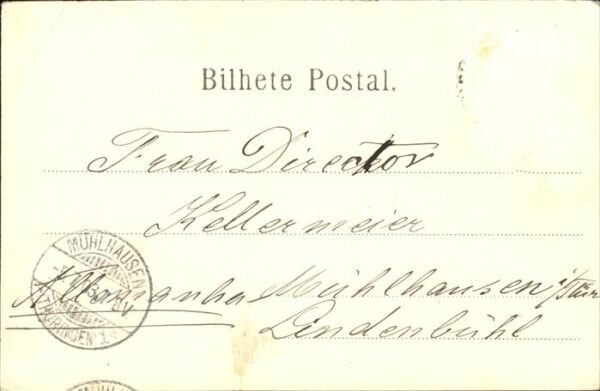 Bilhete Postal.
Frau Director
Kellermeier
Allamanha Mühlhausen i/Thür
Lindenbühl
MÜHLHAUSEN
(THÜRINGEN) 1